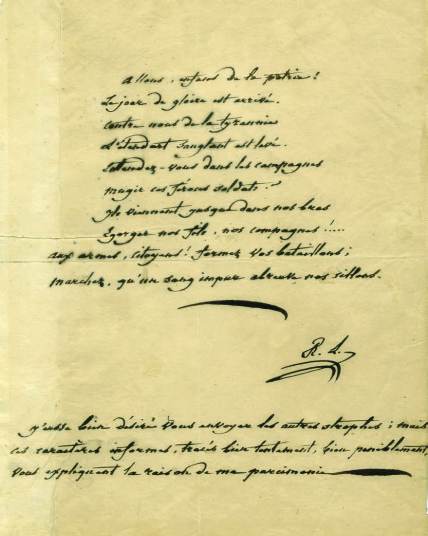 Allons, enfans de la patrie!
Le jour de gloire est arrivé.
Contre nous de la tyrannie
L'étendart sanglant est levé.
Entendez-vous dans les campagnes
mugir ces féroces soldats?
Ils viennent jusque dans nos bras
Egorger nos fils, nos compagnes!....
aux armes, citoyens! formez vos bataillons;
marchez, qu'un sang impur abreuve nos sillons.
R. L.
j'eusse bien désiré vous envoyer les autres strophes; mais
ces caractères informes, tracés bien lentement, bien péniblement,
vous expliquent la raison de ma parcimonie